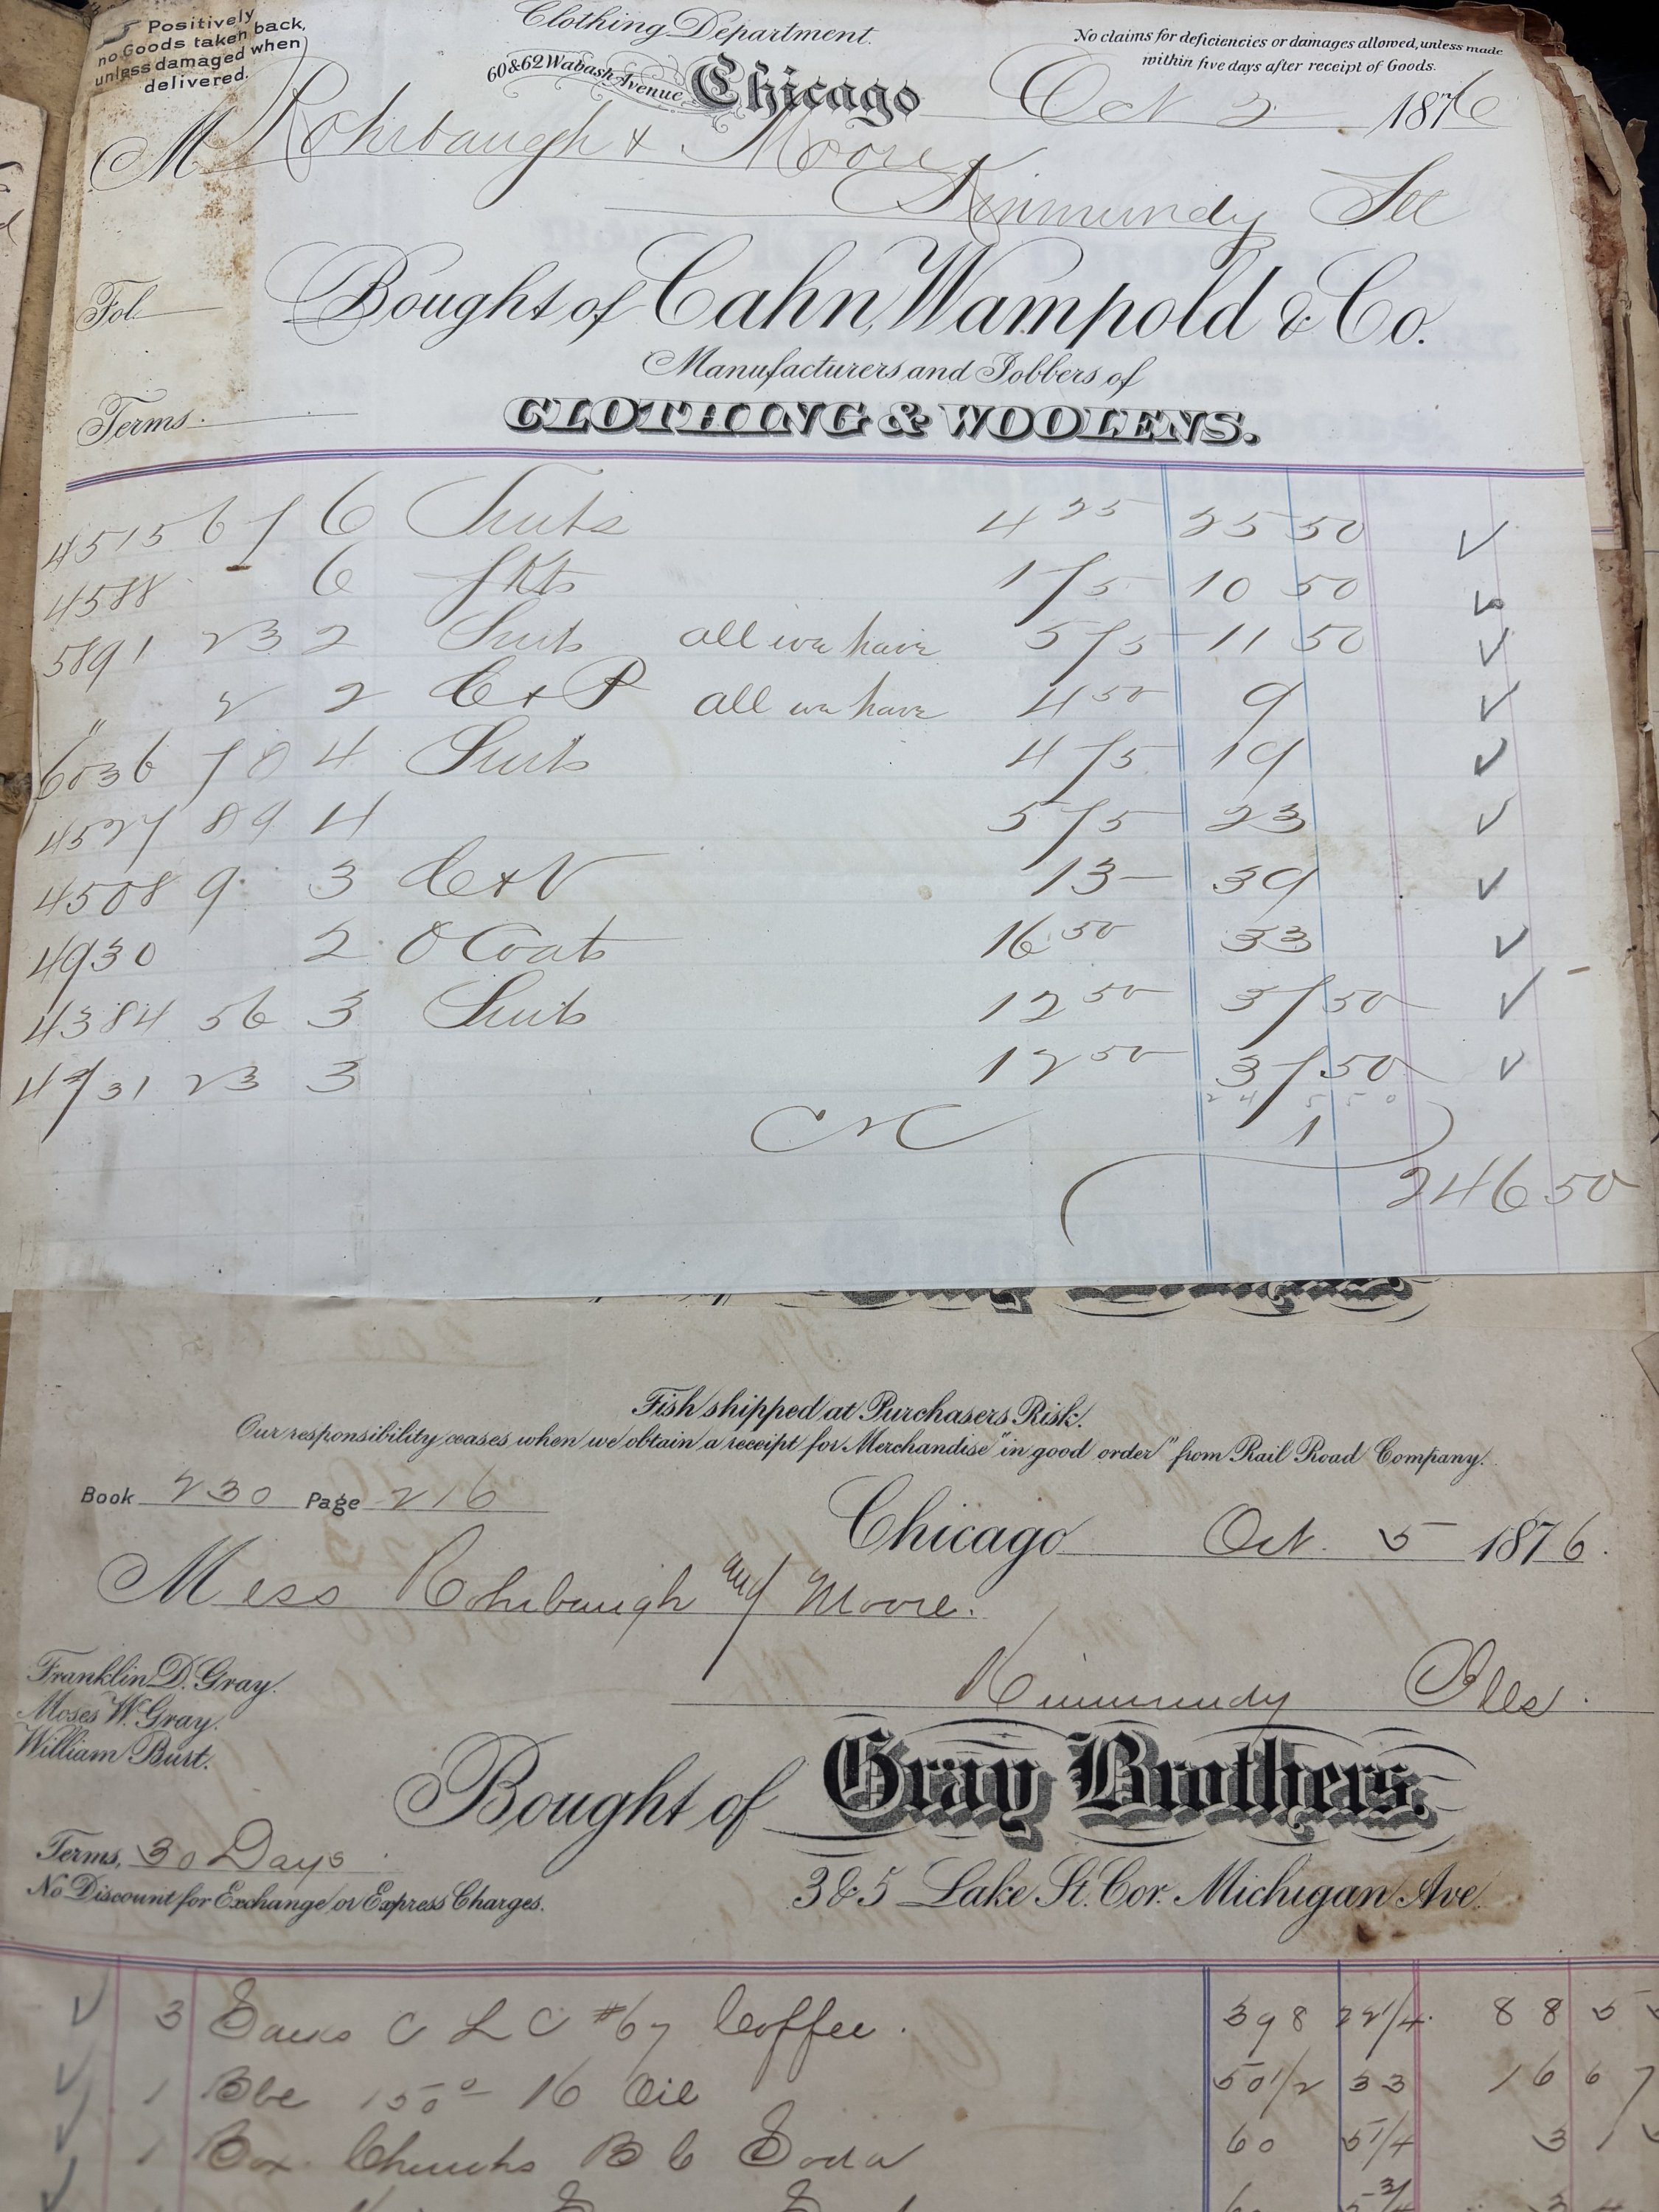 Positively
no Goods taken back,
unless damaged when
delivered.
Clothing Department.
60 & 62 Wabash Avenue
No claims for deficiencies or damages allowed, unless made
within five days after receipt of Goods.
Chicago Oct 2 1876
M Rohrbaugh & Moore
Kinmundy Ill
Fol.
Bought of Cahn, Wampold & Co.
Manufacturers and Jobbers of
Terms.
CLOTHING & WOOLENS.
4515 67 6 Suits 4 25 25 50 ✓
4588 6 Jkts 1 75 10 50 ✓
5891 23 2 Suits all we have 5 75 11 50 ✓
" 2 2 C & P all we have 4 50 9 ✓
6036 78 4 Suits 4 75 19 ✓
4527 89 4 5 75 23 ✓
4508 9 3 C & V 13 — 39 ✓
4930 2 O Coats 16 50 33 ✓
4384 56 3 Suits 12 50 37 50 ✓
4731 23 3 12 50 37 50 ✓
245 50
1
246 50
Fish shipped at Purchasers Risk.
Our responsibility ceases when we obtain a receipt for Merchandise "in good order" from Rail Road Company.
Book 230 Page 216
Chicago Oct. 5 1876.
Mess Rohrbaugh and Moore.
Kinmundy Ills.
Franklin D. Gray.
Moses W. Gray.
William Burt.
Bought of Gray Brothers.
Terms, 30 Days
No Discount for Exchange or Express Charges.
3 & 5 Lake St. Cor. Michigan Ave.
✓ 3 Sacks C L C #67 Coffee. 398 22 1/4 88 5
✓ 1 Bbl 150° 16 Oil 50 1/2 33 16 67
✓ 1 Box Churchs B C Soda 60 5 1/4 3 1